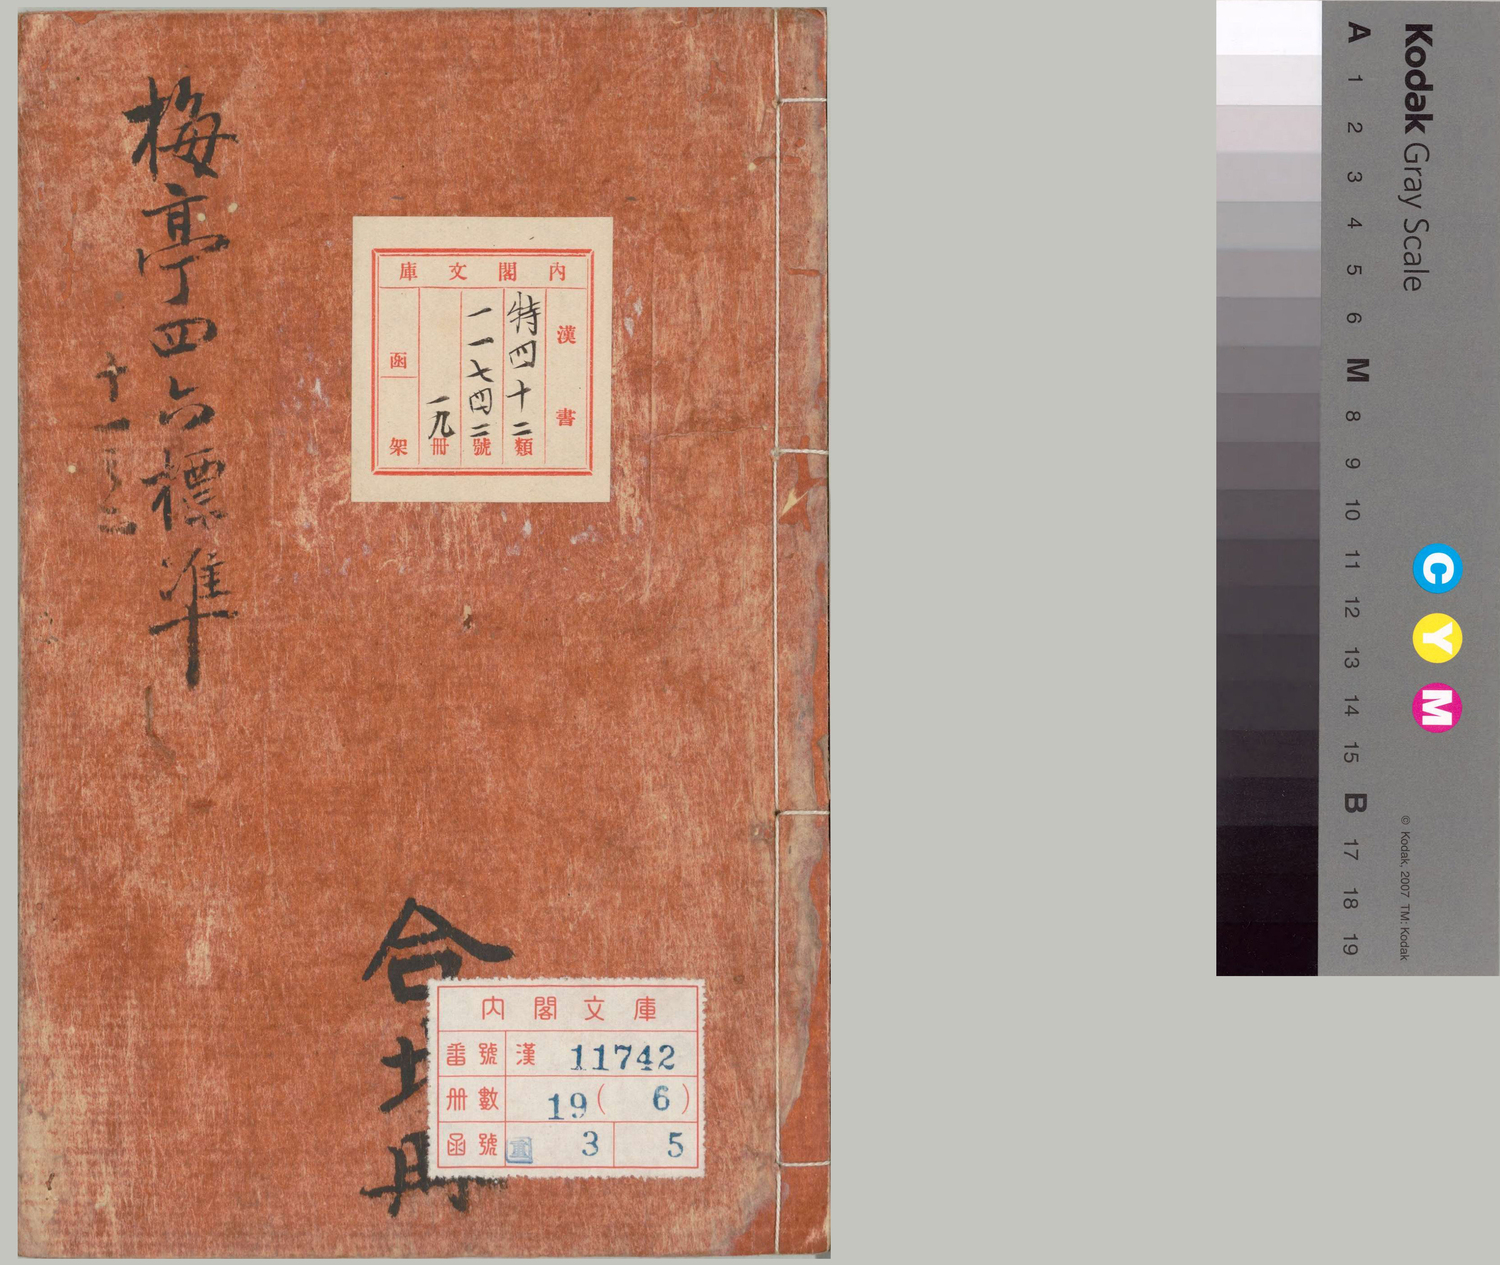 梅亭四六標準
十一
內閣文庫
漢書
特四十二類
一一七四二號
一九冊
函
架
合
冊
內閣文庫
番號 漢 11742
册數 19 ( 6 )
函號 3 5
Kodak Gray Scale
A 1 2 3 4 5 6 M 8 9 10 11 12 13 14 15 B 17 18 19
C Y M
© Kodak, 2007 TM: Kodak